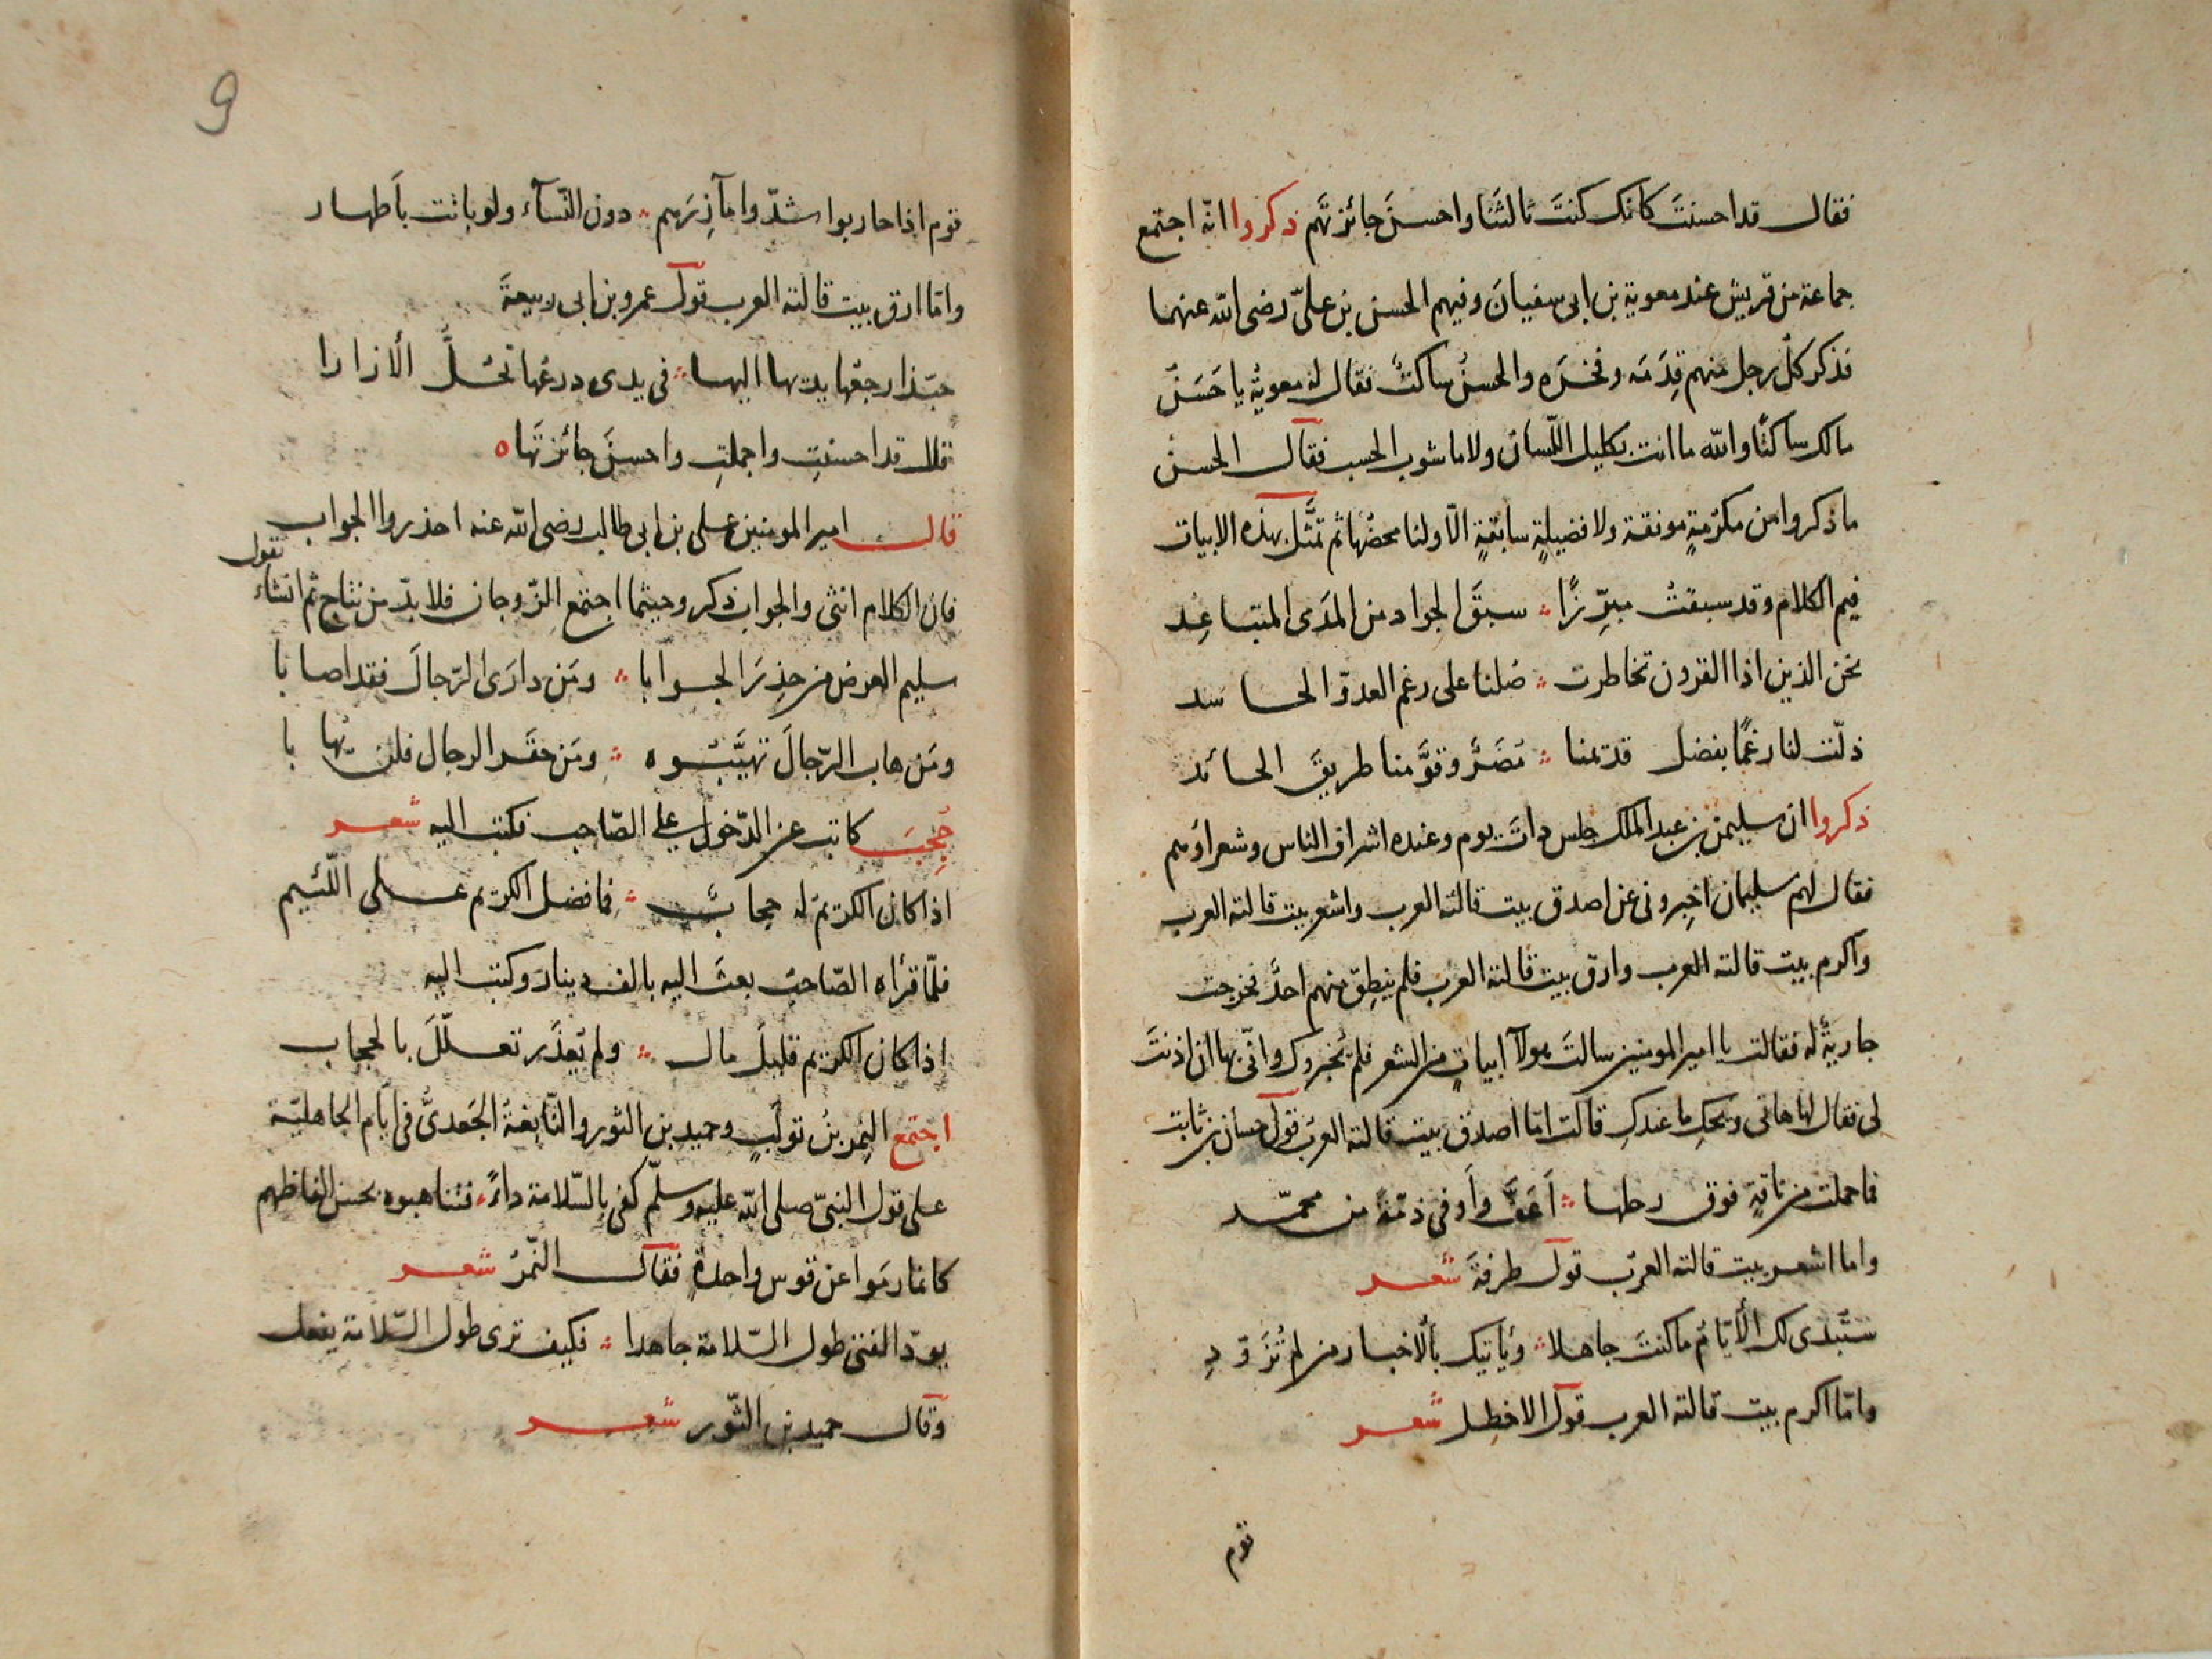 فقال قد احسنتَ كانك كنتَ ثالثَنا واحسنَ جائزتَهم ذكروا انّه اجتمع
جماعة من قريش عند معوية بن ابى سفيانَ وفيهم الحسن بن علىّ رضى الله عنهما
فذكر كلّ رجل منهم قِدَمَه وفخرَه والحسنُ ساكتٌ فقال له معويةُ يا حَسَنُ
مالك ساكتًا والله ما انت بكليل اللّسان ولا ماشوب الحسب فقال الحسنُ
ما ذكروا من مكرُمةٍ مونقة ولا فضيلةٍ سابقةٍ الّا ولنا محضُها ثم تمثّل بهذه الابيات
فيم الكلام وقد سبقتُ مبرِّزًا ؞ سبقَ الجواد من المَدَى المتباعِد
نحن الذين اذا القرون تخاطرت ؞ ضلنا على رغم العدوّ الحاسد
ذلّت لنا رغمًا بفضل قديمنا ؞ مُضَرٌ وقوَّمنا طريقَ الحائد
ذكروا ان سليمن بن عبد الملك جلس ذات يوم وعنده اشراف الناس وشعراؤهم
فقال لهم سليمان اخبرونى عن اصدق بيت قالته العرب واشعر بيت قالته العرب
واكرم بيت قالته العرب وارق بيت قالته العرب فلم ينطِق منهم احدٌ فخرجت
جاريةٌ له فقالت يا امير المومنين سالتَ هولآ ابياتٍ من الشعر فلم يُخبروك وانّى بها ان اذنتَ
لى فقال لها هاتى ويحكِ ما عندكِ قالت امّا اصدق بيت قالته العرب قول حسان بن ثابت
فما حملت من ناقةٍ فوق رحلها ؞ اَعَفَّ واَوفى ذمّةً من محمّد
واما اشعر بيت قالته العرب قول طرفةَ شعر
ستُبدى لك الأيّامُ ما كنتَ جاهلا ؞ وَيأتيك بالاخبار من لم تُزَوّدِ
وامّا اكرم بيت قالته العرب قول الاخطل شعر
قوم
9
قوم اذا حاربوا شدّوا مآزِرَهم ؞ دون النّسآء ولو باتت بأطهار
وامّا ارق بيت قالته العرب قول عمرو بن ابى ربيعةَ
حبّذا رجعُها يديها اليها ؞ فى يدى درعُها تحُلُّ الأزارا
قال قد احسنتِ واجملتِ واحسنَ جائزتَها ه
قال امير المومنين على بن ابى طالب رضى الله عنه احذروا الجواب
فان الكلام انثى والجواب ذكر وحيثما اجتمع الزّوجان فلا بدّ من نتاج ثم انشاء يقول
سليم العرض من حذِرَ الجوابا ؞ ومَن دارَى الرّجالَ فقد اصابا
ومَن هاب الرّجالَ تهيَّبُوه ؞ ومَن حقَر الرجال فلن يُهابا
حُجِبَ كاتب عن الدّخول على الصّاحب فكتب اليه شعر
اذا كان الكريم له حجابٌ ؞ فما فضل الكريم على اللّئيم
فلمّا قرأه الصّاحبُ بعثَ اليه بالف دينار وكتب اليه
اذا كان الكريم قليلَ مال ؞ ولم يُعذَر تعلّلَ بالحجاب
اجتمع النِمر بنُ تولَبٍ وحميد بن الثور والنّابغةُ الجَعدىُّ فى ايّام الجاهليّة
على قول النبىّ صلى الله عليه وسلّم كفى بالسّلامة داءً فتناهبوه بحسن الفاظهم
كانما رمَوا عن قوس واحدةٍ فقال النّمرُ شعر
يودّ الفتى طول السّلامة جاهدا ؞ فكيف ترى طول السّلامة يفعل
وقال حميد بن الثّور شعر